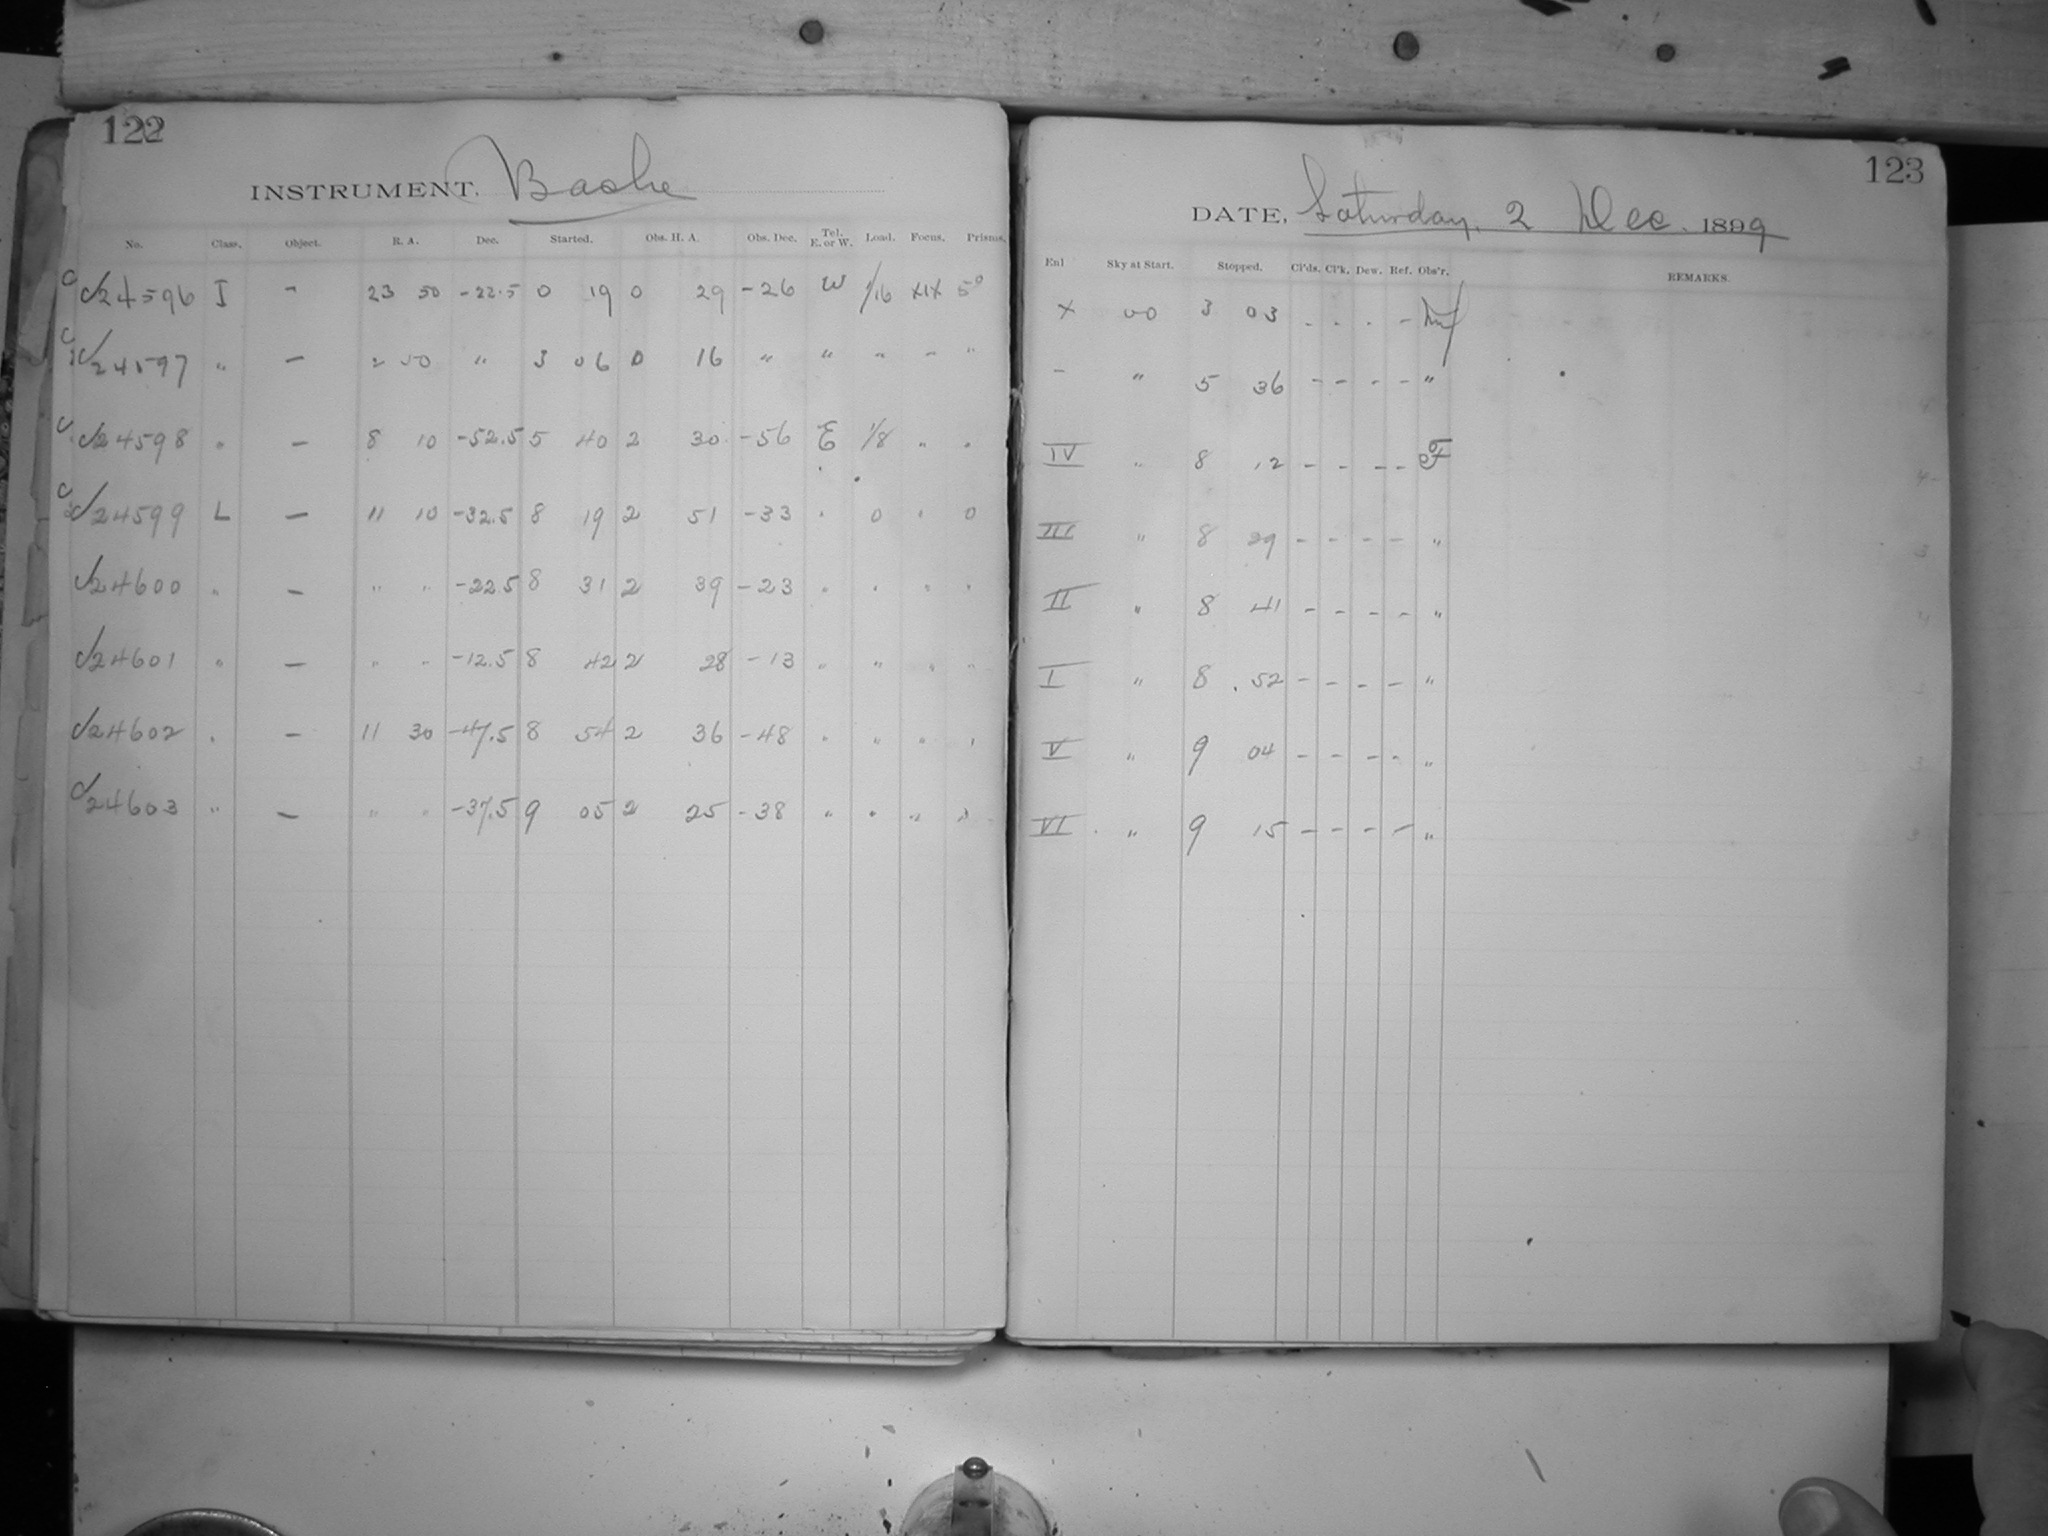 122
INSTRUMENT. Bache
No. Class. Object. R. A. Dec. Started. Obs. H. A. Obs. Dec. Tel. E. or W. Load. Focus. Prisms.
c √24596 I - 23 50 -22.5 0 19 0 29 -26 W 1/16 XIX 5°
c √24597 " - 2 50 " 3 06 0 16 " " " " "
c √24598 " - 8 10 -52.5 5 40 2 30 -56 E 1/8 " "
c √24599 L - 11 10 -32.5 8 19 2 51 -33 " 0 " 0
√24600 " - " " -22.5 8 31 2 39 -23 " " " "
√24601 " - " " -12.5 8 42 2 28 -13 " " " "
√24602 " - 11 30 -47.5 8 54 2 36 -48 " " " "
√24603 " - " " -37.5 9 05 2 25 -38 " " " "
123
DATE, Saturday, 2 Dec. 1899
Enl Sky at Start. Stopped. Cl'ds. Cl'k. Dew. Ref. Obs'r. REMARKS.
X 00 3 03 - - - -
- " 5 36 - - - - "
IV " 8 12 - - - - F
III " 8 29 - - - - "
II " 8 41 - - - - "
I " 8 52 - - - - "
V " 9 04 - - - - "
VI " 9 15 - - - - "